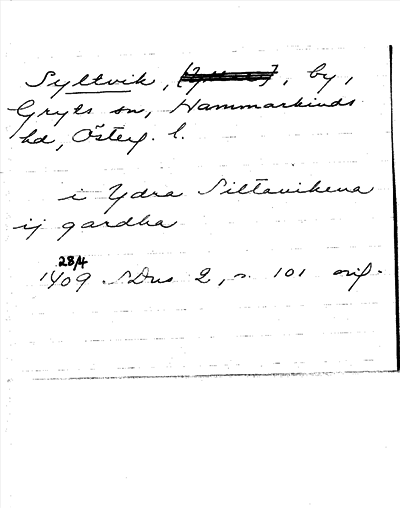 Syltvik, , by,
Gryts sn, Hammarkinds
hd, Österg. l.
i Ydra Siltauikena
ij gardha
28/4
1409. SDns 2, s. 101 orig.